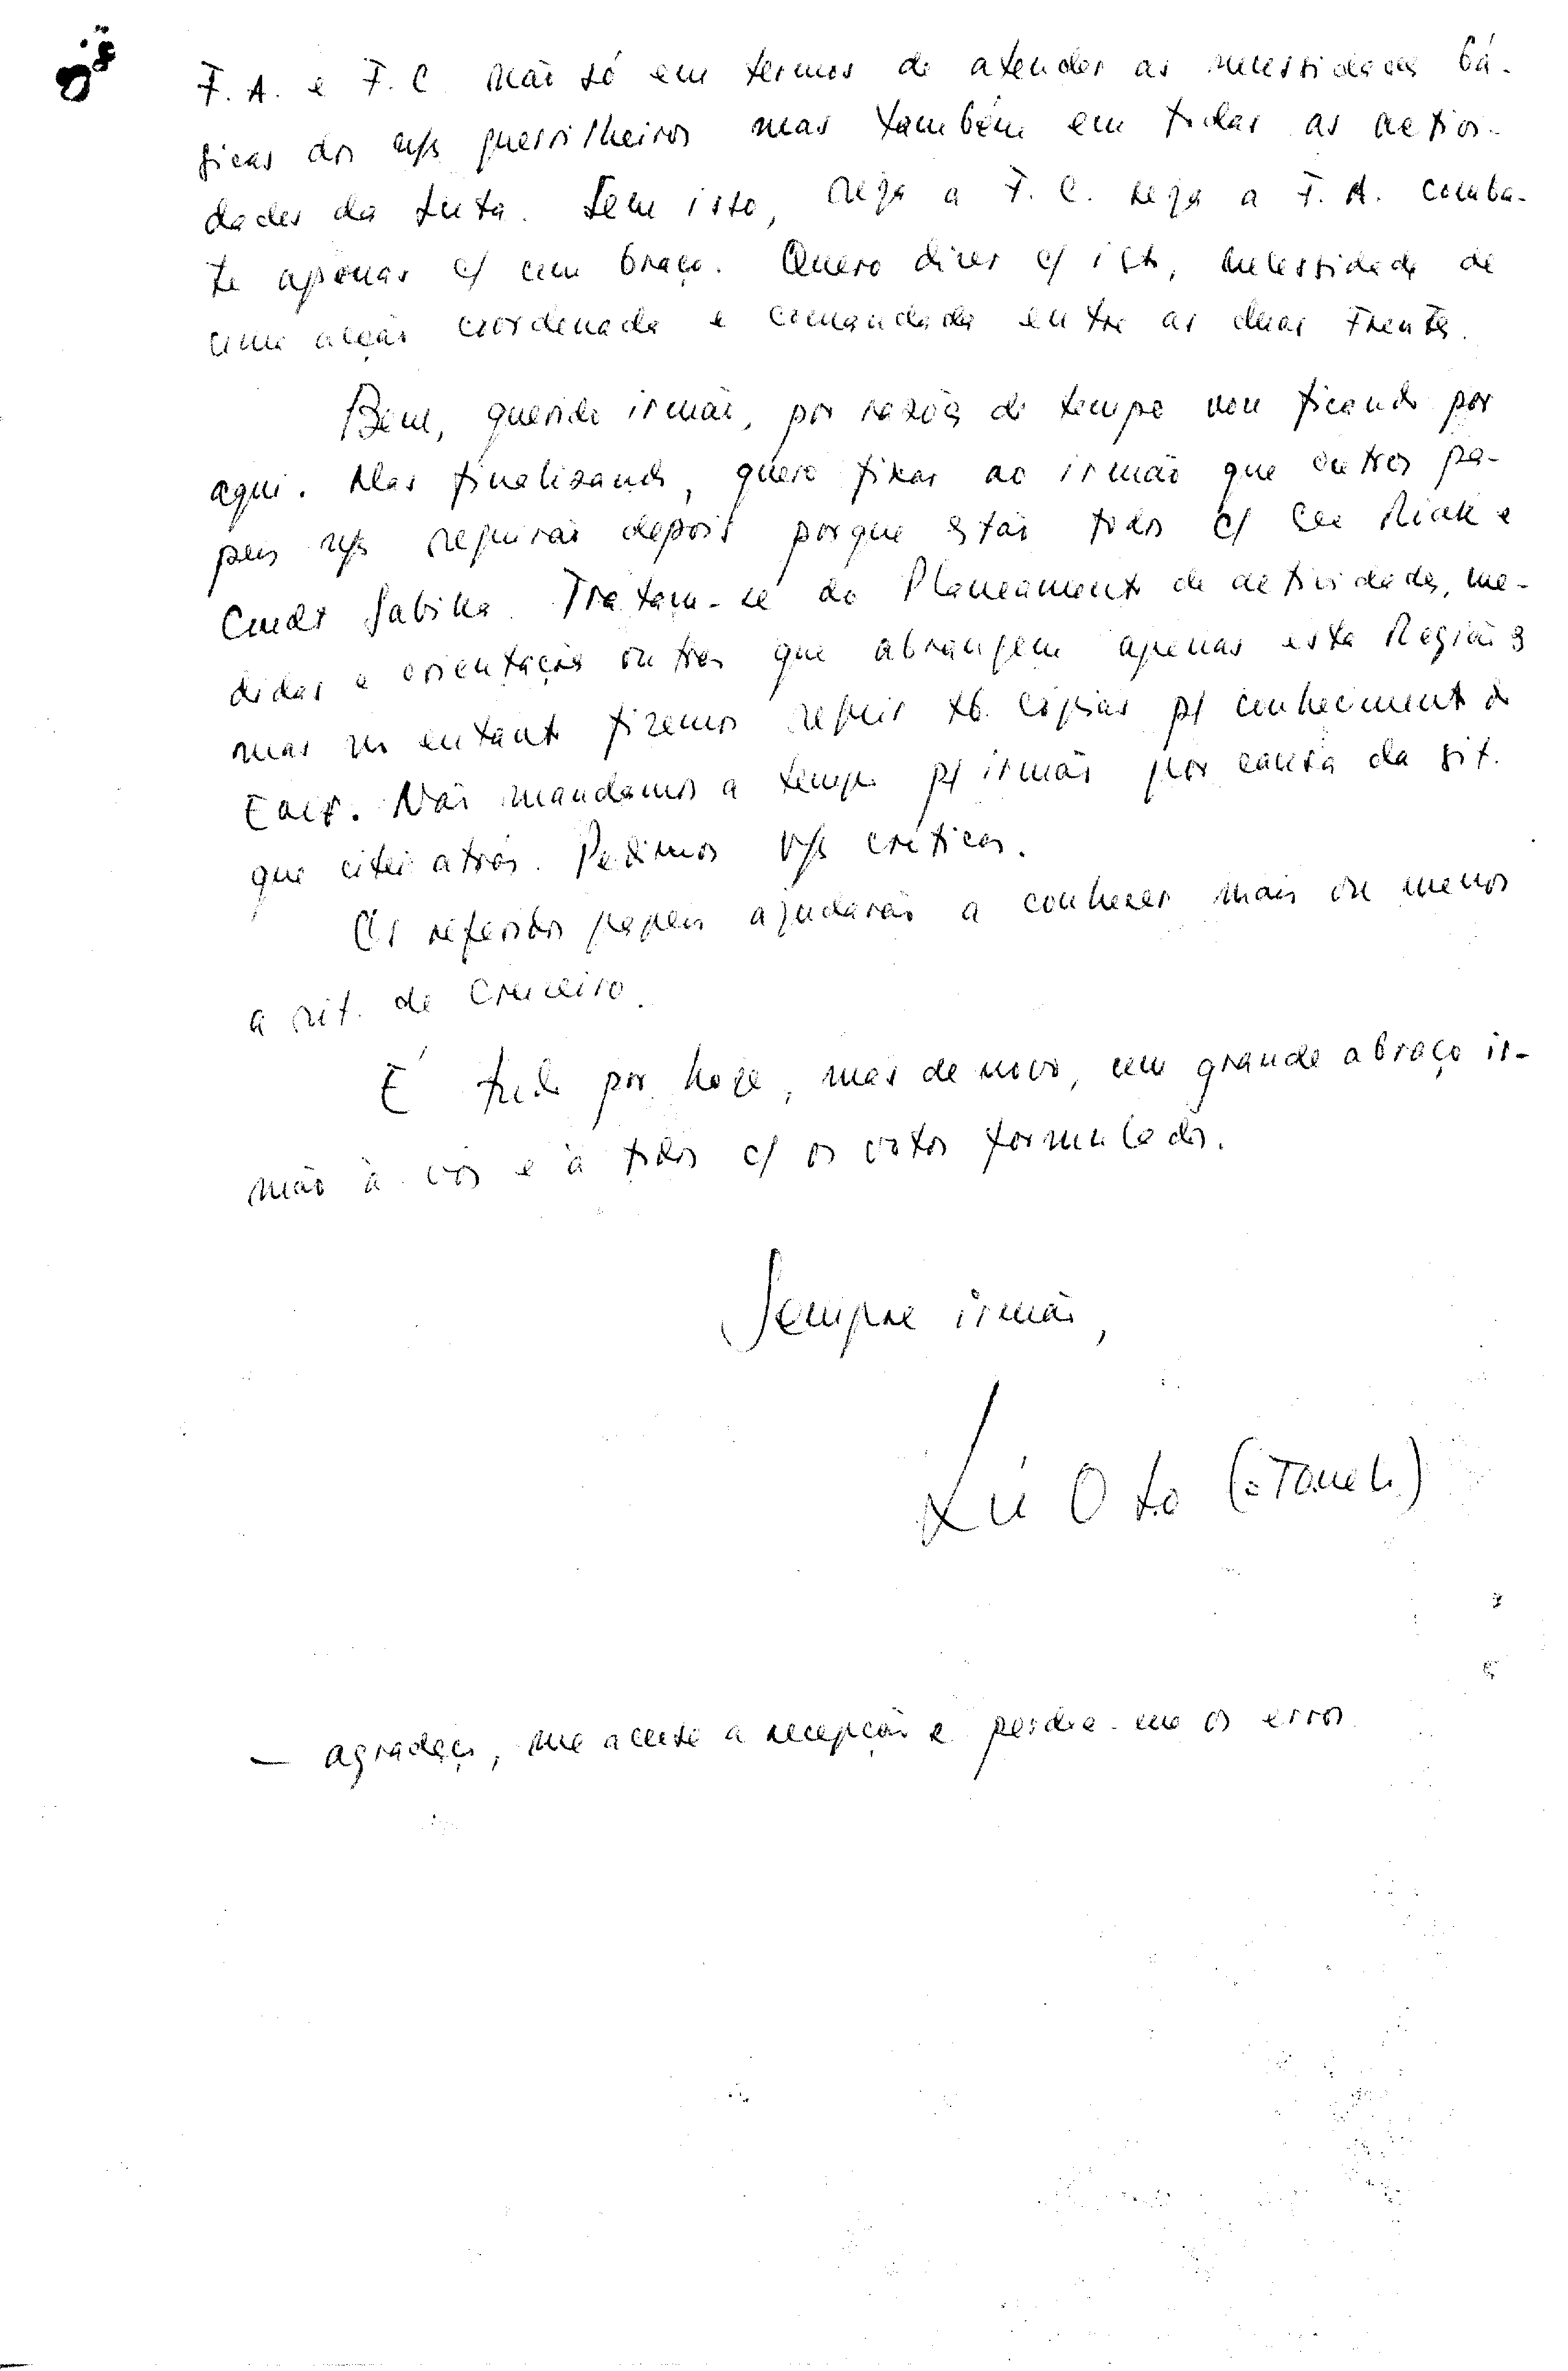 F. A. e F. C. não só em termos de atender as necessidades bá-
sicas dos n/s guerrilheiros mas também em todas as activi-
dades da luta. Sem isto, seja a F. C. seja a F. A. comba-
te apenas c/ um braço. Quero dizer c/ isto, necessidade de
uma acção coordenada e comandada entre as duas Frentes.
Bem, querido irmão, por razões de tempo vou ficando por
aqui. Mas finalizando, quero fixar ao irmão que outros pa-
peis n/s seguirão depois porque estão todos c/ e
Cmdt Sabilia. Tratam-se do Planeamento de actividades, me-
didas e orientações outras que abrangem apenas esta Região
mas no entanto fizemos seguir tb. cópias p/ conhecimento do
Não mandamos a tempo p/ irmão por causa da sit.
que citei atrás. Pedimos v/s críticas.
Os referidos papeis ajudarão a conhecer mais ou menos
a sit. de Cruzeiro.
É tudo por hoje, mas de novo, um grande abraço ir-
mão à vós e à todos c/ os votos formulados.
Sempre irmão,
Lú Oto
— agradeço, me aceite a recepção e perdoe-me os erros